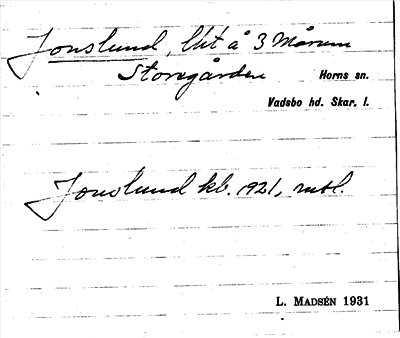 Jonslund, lht å 3 Mårum
Storegården Horns sn.
Vadsbo hd. Skar. l.
Jonslund kb. 1921, mtl.
L. MADSÉN 1931